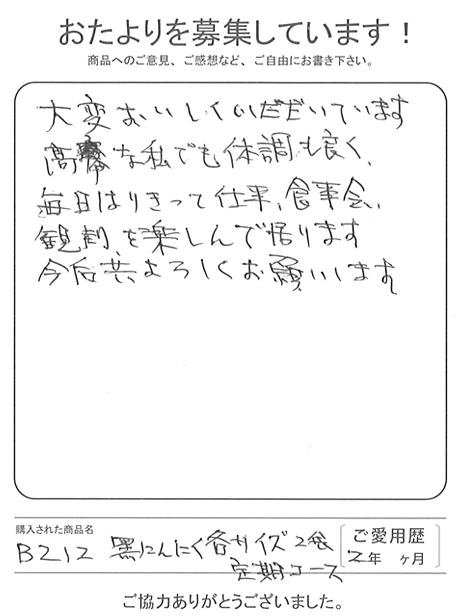 おたよりを募集しています！
商品へのご意見、ご感想など、ご自由にお書き下さい。
大変おいしくいただいています
高齢な私でも体調も良く、
毎日はりきって仕事、食事会、
観劇、を楽しんで居ります
今后共よろしくお願いします
購入された商品名
B212 黒にんにく各サイズ2袋
定期コース
ご愛用歴
2年 ヶ月
ご協力ありがとうございました。